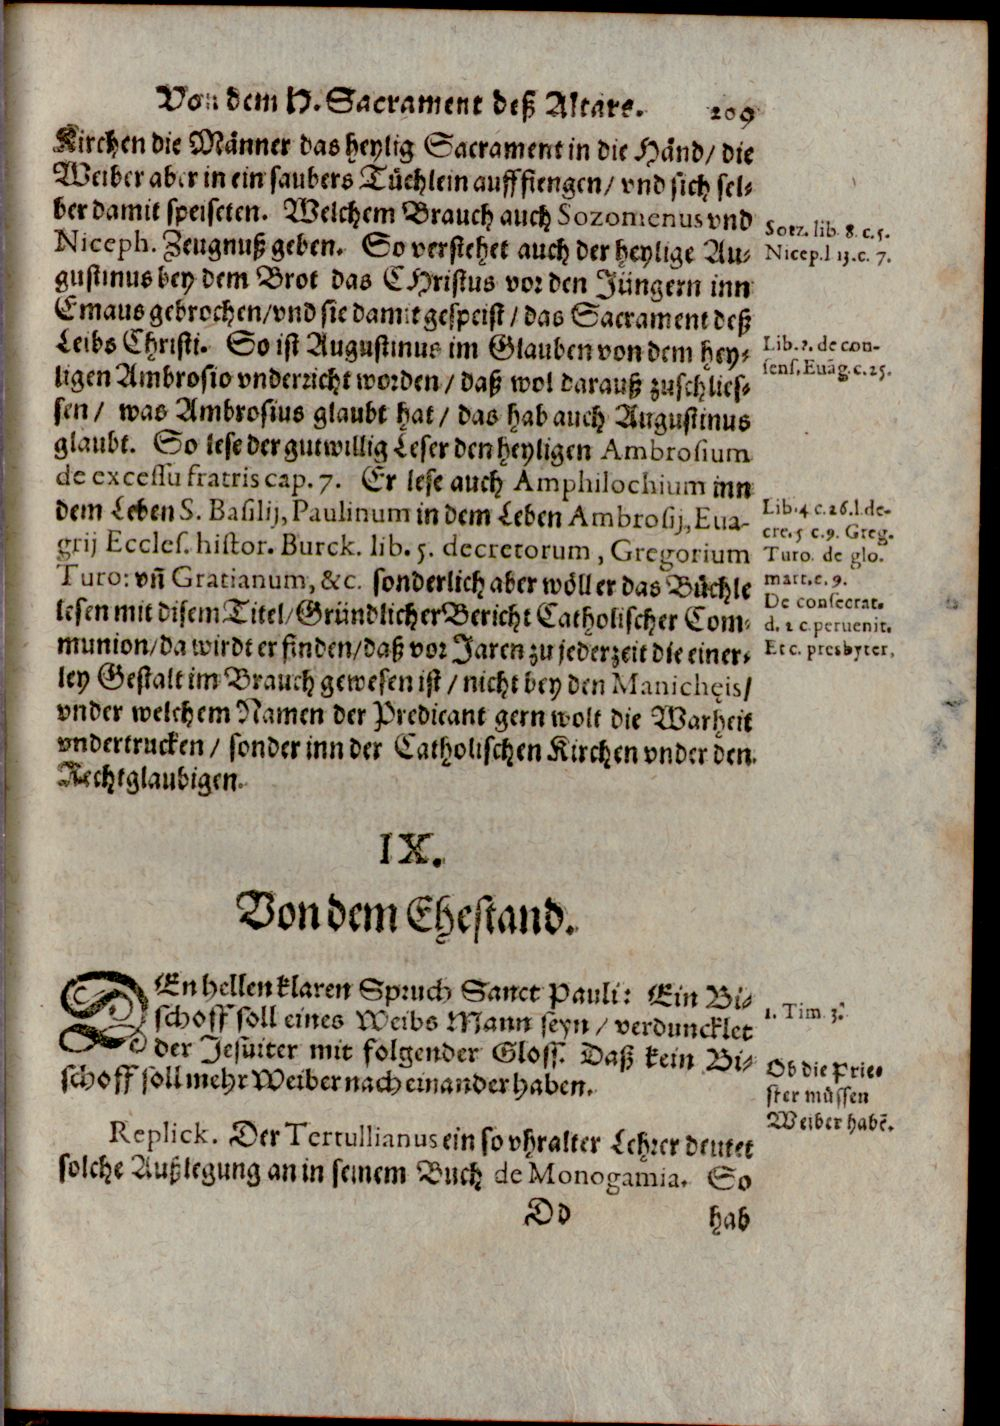 Von dem H. Sacrament deß Altars. 209
Kirchen die Männer das heylig Sacrament in die Händ/ die
Weiber aber in ein saubers Tüchlein aufffiengen/ vnd sich sel-
ber damit speiseten. Welchem Brauch auch Sozomenus vnd
Niceph. Zeugnuß geben. So verstehet auch der heylige Au-
gustinus bey dem Brot das CHristus vor den Jüngern inn
Emaus gebrochen/ vnd sie damit gespeist/ das Sacrament deß
Leibs Christi. So ist Augustinus im Glauben von dem hey-
ligen Ambrosio vnderricht worden/ daß wol darauß zuschlies-
sen/ was Ambrosius glaubt hat/ das hab auch Augustinus
glaubt. So lese der gutwillig Leser den heyligen Ambrosium
de excessu fratris cap. 7. Er lese auch Amphilochium inn
dem Leben S. Basilij, Paulinum in dem Leben Ambrosij, Eua-
grij Eccles. histor. Burck. lib. 5. decretorum, Gregorium
Turo: vñ Gratianum, &c. sonderlich aber wöll er das Büchle
lesen mit disem Titel/ Gründlicher Bericht Catholischer Com-
munion/ da wirdt er finden/ daß vor Jaren zu jederzeit die einer-
ley Gestalt im Brauch gewesen ist/ nicht bey den Manichęis/
vnder welchem Namen der Predicant gern wolt die Warheit
vndertrucken/ sonder inn der Catholischen Kirchen vnder den
Rechtglaubigen.
Sotz. lib. 8. c. 5.
Nicep. l 13. c. 7.
Lib. 3. de con-
sens. Euãg. c. 25.
Lib. 4 c. 26. l. de-
cre. 5 c. 9. Greg.
Turo. de glo.
mart. c. 9.
De consecrat.
d. 2 c peruenit.
Et c. presbyter.
IX.
Von dem Ehestand.
DEn hellen klaren Spruch Sanct Pauli: Ein Bi-
schoff soll eines Weibs Mann seyn/ verduncklet
der Jesuiter mit folgender Gloss. Daß kein Bi-
schoff soll mehr Weiber nach einander haben.
1. Tim. 3.
Ob die Prie-
ster müssen
Weiber habē.
Replick. Der Tertullianus ein so vhralter Lehrer deutet
solche Außlegung an in seinem Buch de Monogamia. So
Dd hab